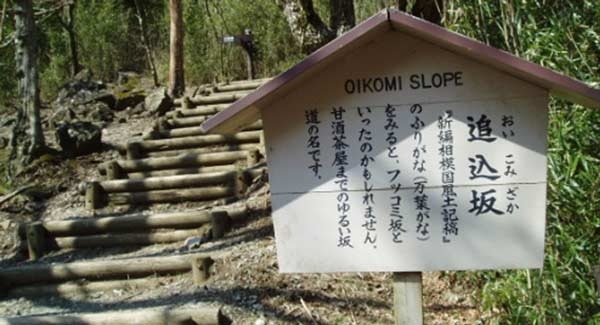 OIKOMI SLOPE
おいこみざか
追込坂
『新編相模国風土記稿』
のふりがな（万葉がな）
をみると、フッコミ坂と
いったのかもしれません。
甘酒茶屋までのゆるい坂
道の名です。